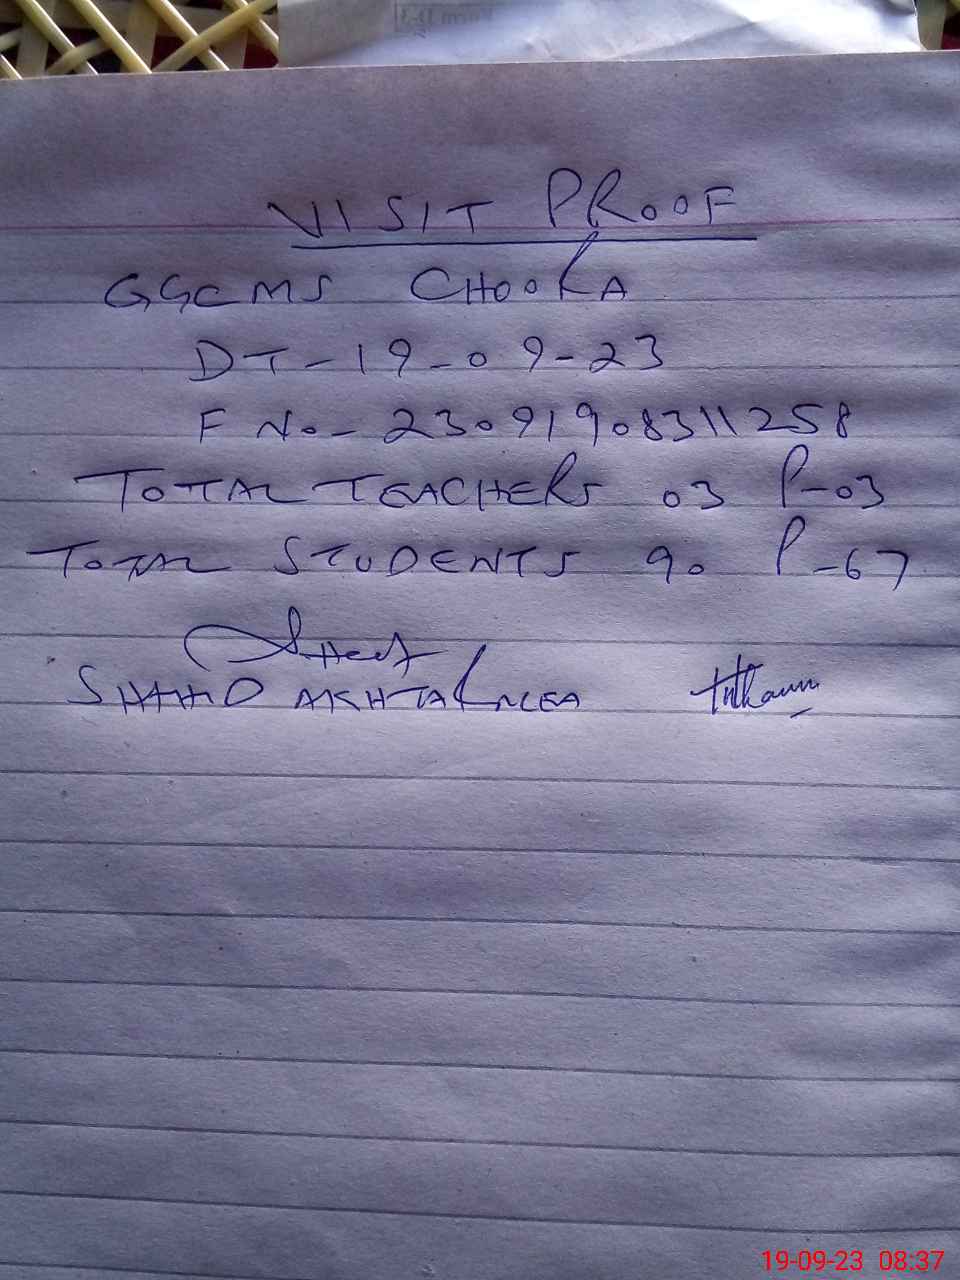 VISIT PROOF
GGCMS CHOORA
DT-19-09-23
F No- 230919083111258
TOTAL TEACHERS 03 P-03
TOTAL STUDENTS 90 P-67
SHAHID AKHTAR MEA
19-09-23 08:37